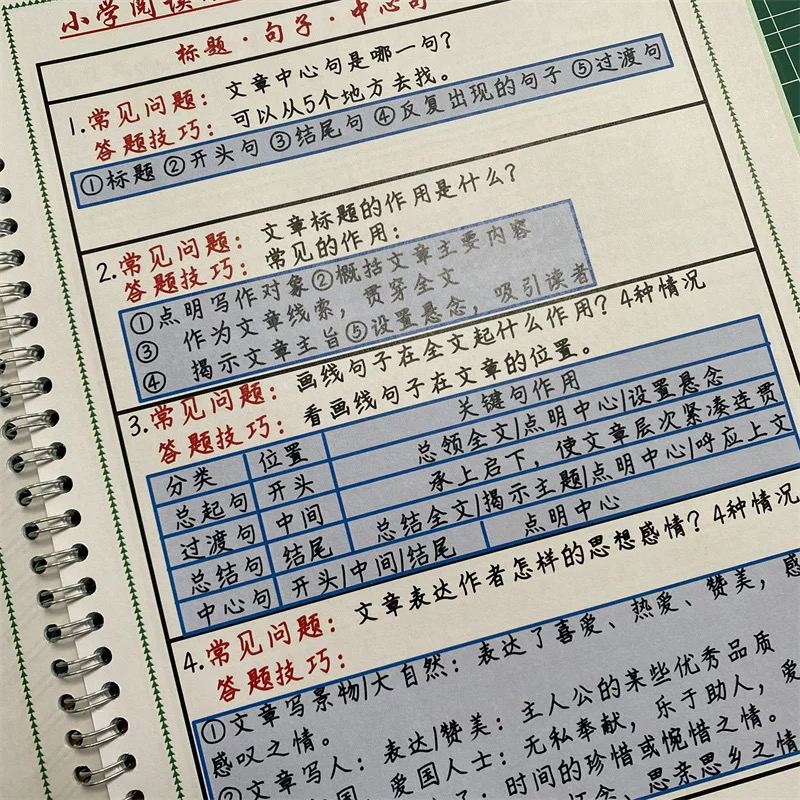 小学阅读
标题·句子·中心句
1.常见问题：文章中心句是哪一句？
答题技巧：可以从5个地方去找。
①标题 ②开头句 ③结尾句 ④反复出现的句子 ⑤过渡句
2.常见问题：文章标题的作用是什么？
答题技巧：常见的作用：
①点明写作对象②概括文章主要内容
③ 作为文章线索，贯穿全文
④ 揭示文章主旨⑤设置悬念，吸引读者
3.常见问题：画线句子在全文起什么作用？4种情况
答题技巧：看画线句子在文章的位置。
分类 位置 关键句作用
总起句 开头 总领全文/点明中心/设置悬念
过渡句 中间 承上启下，使文章层次紧凑连贯
总结句 结尾 总结全文/揭示主题/点明中心/呼应上文
中心句 开头/中间/结尾 点明中心
4.常见问题：文章表达作者怎样的思想感情？4种情况
答题技巧：
①文章写景物/大自然：表达了喜爱、热爱、赞美，感
感叹之情。
②文章写人：表达/赞美：主人公的某些优秀品质
爱国人士：无私奉献，乐于助人，爱
时间的珍惜或惋惜之情。
思亲思乡之情